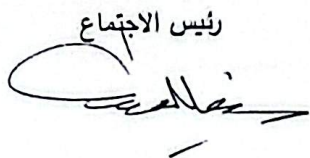 رئيس الاجتماع